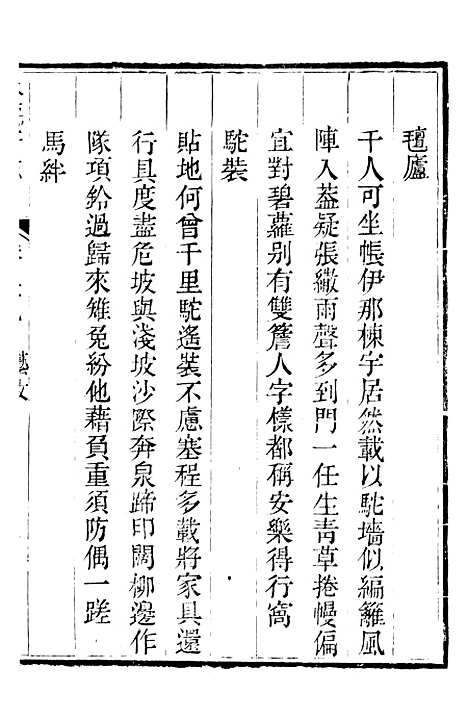 氊廬
千人可坐帳伊那棟宇居然載以駝墻似編籬風
陣入葢疑張繖雨聲多到門一任生青草捲幔偏
宜對碧蘿别有雙簷人字㨾都稱安樂得行窩
駝裝
貼地何曾千里駝遙裝不慮塞程多載將家具還
行具度盡危坡與淺坡沙際奔泉蹄印闊柳邊作
隊項鈴過歸來雉兔紛他藉負重須防偶一蹉
馬絆
藝文